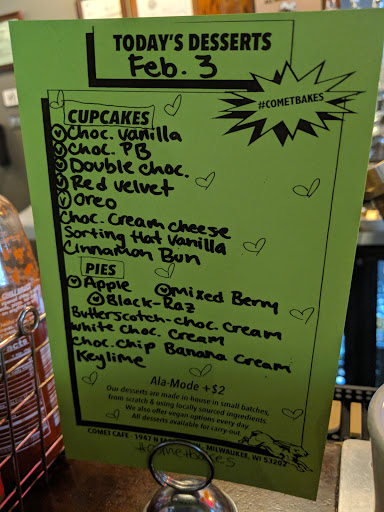 TODAY'S DESSERTS
Feb. 3
#COMETBAKES
CUPCAKES
V Choc. Vanilla
V Choc. PB
V Double choc.
V Red velvet
V Oreo
Choc. Cream cheese
Sorting Hat Vanilla
Cinnamon Bun
PIES
V Apple V mixed Berry
V Black-Raz
Butterscotch-choc. cream
white choc. cream
choc. chip Banana Cream
Keylime
Ala-Mode +$2
Our desserts are made in-house in small batches,
from scratch & using locally sourced ingredients.
We also offer vegan options every day.
All desserts available for carry-out.
COMET CAFE · 1947 N MILWAUKEE, WI 53202
#cometbakes